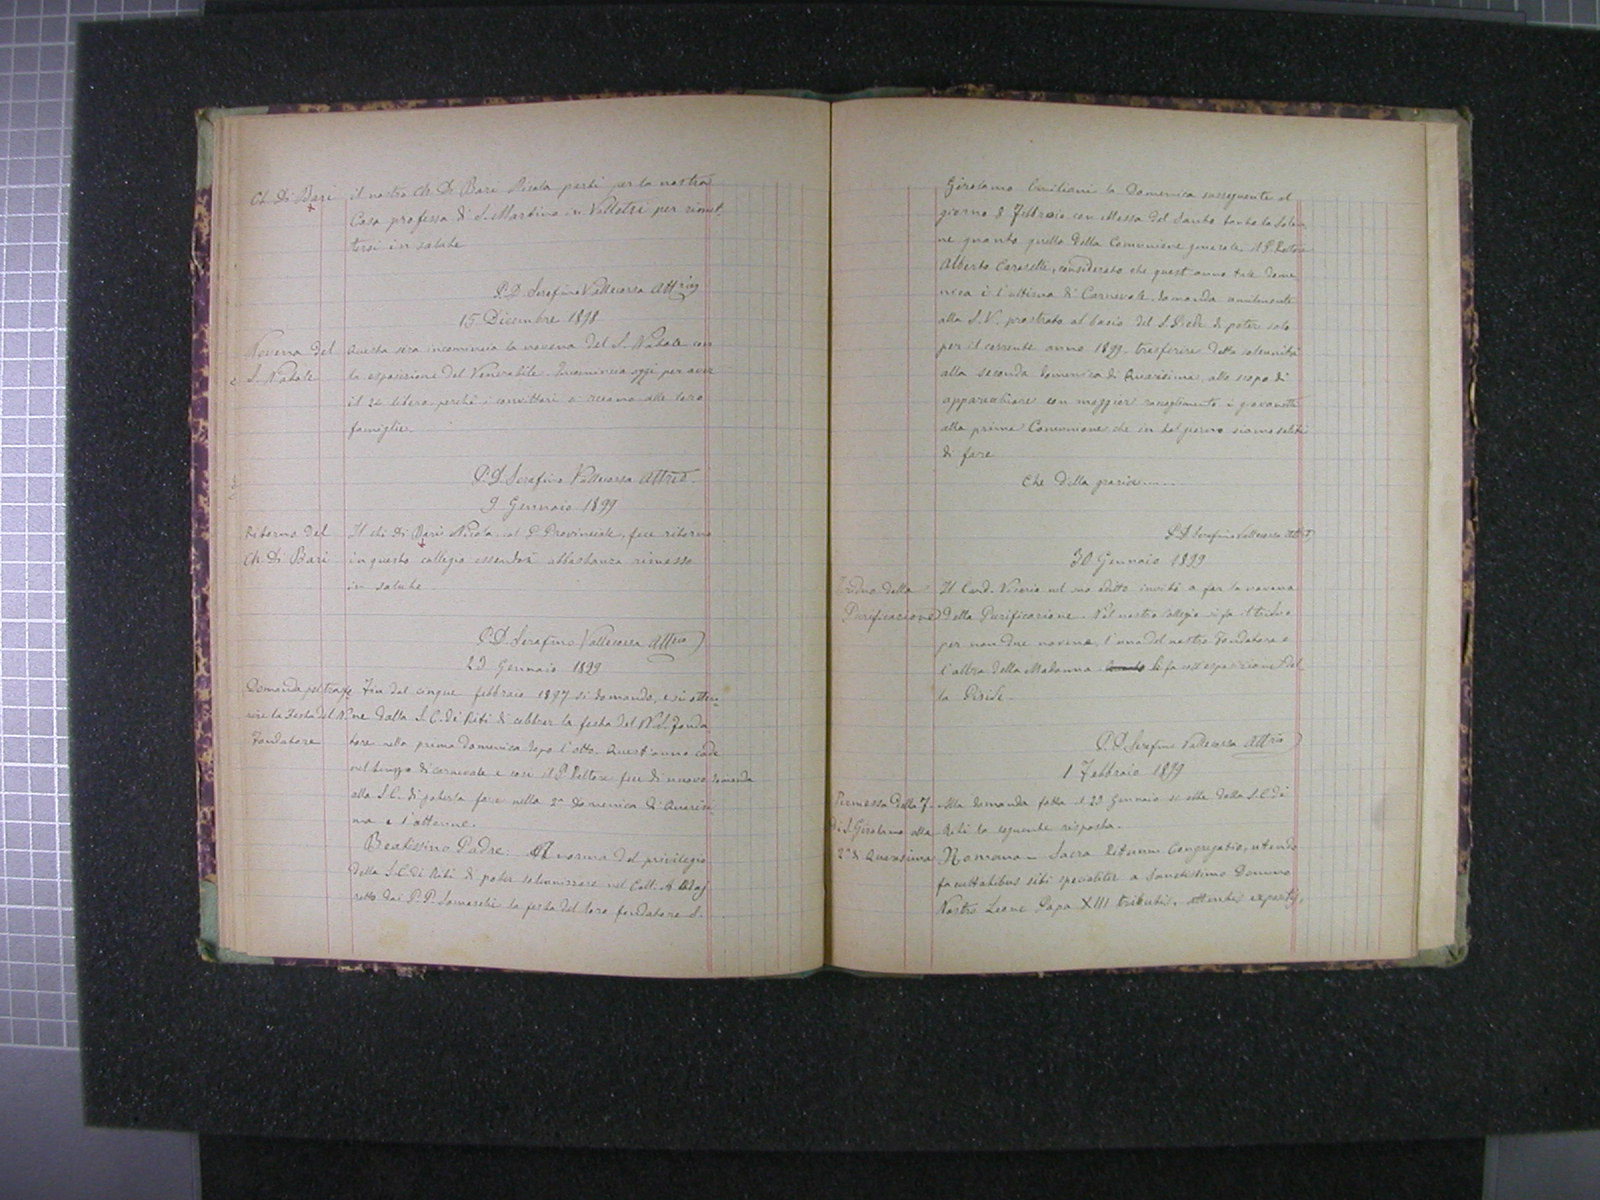 Ch. Di Bari
il nostro Ch. Di Bari Nicola partì per la nostra
Casa professa di S. Martino in Velletri per rimet-
tersi in salute
P. D. Serafino Vallecorsa Attrio
15 Dicembre 1898
Novena del
S. Natale
Questa sera incomincia la novena del S. Natale con
la esposizione del Venerabile. Incomincia oggi per aver
il 24 libero perchè i convittori si recano alle loro
famiglie.
P. D. Serafino Vallecorsa Attrio
9 Gennaio 1899
Ritorno del
Ch. Di Bari
Il ch. Di Bari Nicola, col P. Provinciale, fece ritorno
in questo collegio essendosi abbastanza rimesso
in salute
P. D. Serafino Vallecorsa Attrio
23 Gennaio 1899
Domanda per trasfe
rire la Festa del N.
Fondatore
Fin dal cinque febbraio 1897 si domandò, e si otten-
ne dalla S. C. di Riti di celebrar la festa del N. S. Fonda
tore nella prima domenica dopo l'otto. Quest'anno cade
nel tempo di carnevale e così il P. Rettore fece di nuovo domanda
alla S. C. di poterla fare nella 2ª Domenica di Quaresi-
ma e l'ottenne.
Beatissimo Padre. A norma del privilegio
della S. C. di Riti di poter solennizzare nel Coll.
retto dai P. P. Somaschi la festa del loro fondatore S.
Girolamo Emiliani la Domenica susseguente al
giorno 8 Febbraio con Messa del Santo tanto la solen
ne quanto quella della Comunione generale, il P. Rettore
Alberto Caroselli, considerato che quest'anno tale dome
nica è l'ultima di Carnevale, domanda umilmente
alla S. V. prostrato al bacio del S. Piede di poter solo
per il corrente anno 1899 trasferire detta solennità
alla seconda domenica di Quaresima, allo scopo di
apparecchiare con maggior raccoglimento i giovanetti
alla prima Comunione che in tal giorno siamo soliti
di fare
Che della grazia.....
P. D. Serafino Vallecorsa Attrio
30 Gennaio 1899
Triduo della
Purificazione
Il Card. Vicario nel suo editto invitò a far la novena
della Purificazione. Nel nostro Collegio si fa il triduo
per non due novene, l'una del nostro Fondatore e
l'altra della Madonna si fa coll'esposizione del
la Pisside.
P. D. Serafino Vallecorsa Attrio
1 Febbraio 1899
Permesso della F.
di S. Girolamo alla
2ª di Quaresima
Alla domanda fatta il 23 Gennaio si ebbe dalla S. C. di
Riti la seguente risposta.
Romana Sacra Rituum Congregatio, utendo
facultatibus sibi specialiter a Sanctissimo Domino
Nostro Leone Papa XIII tributis, attentis expositis,